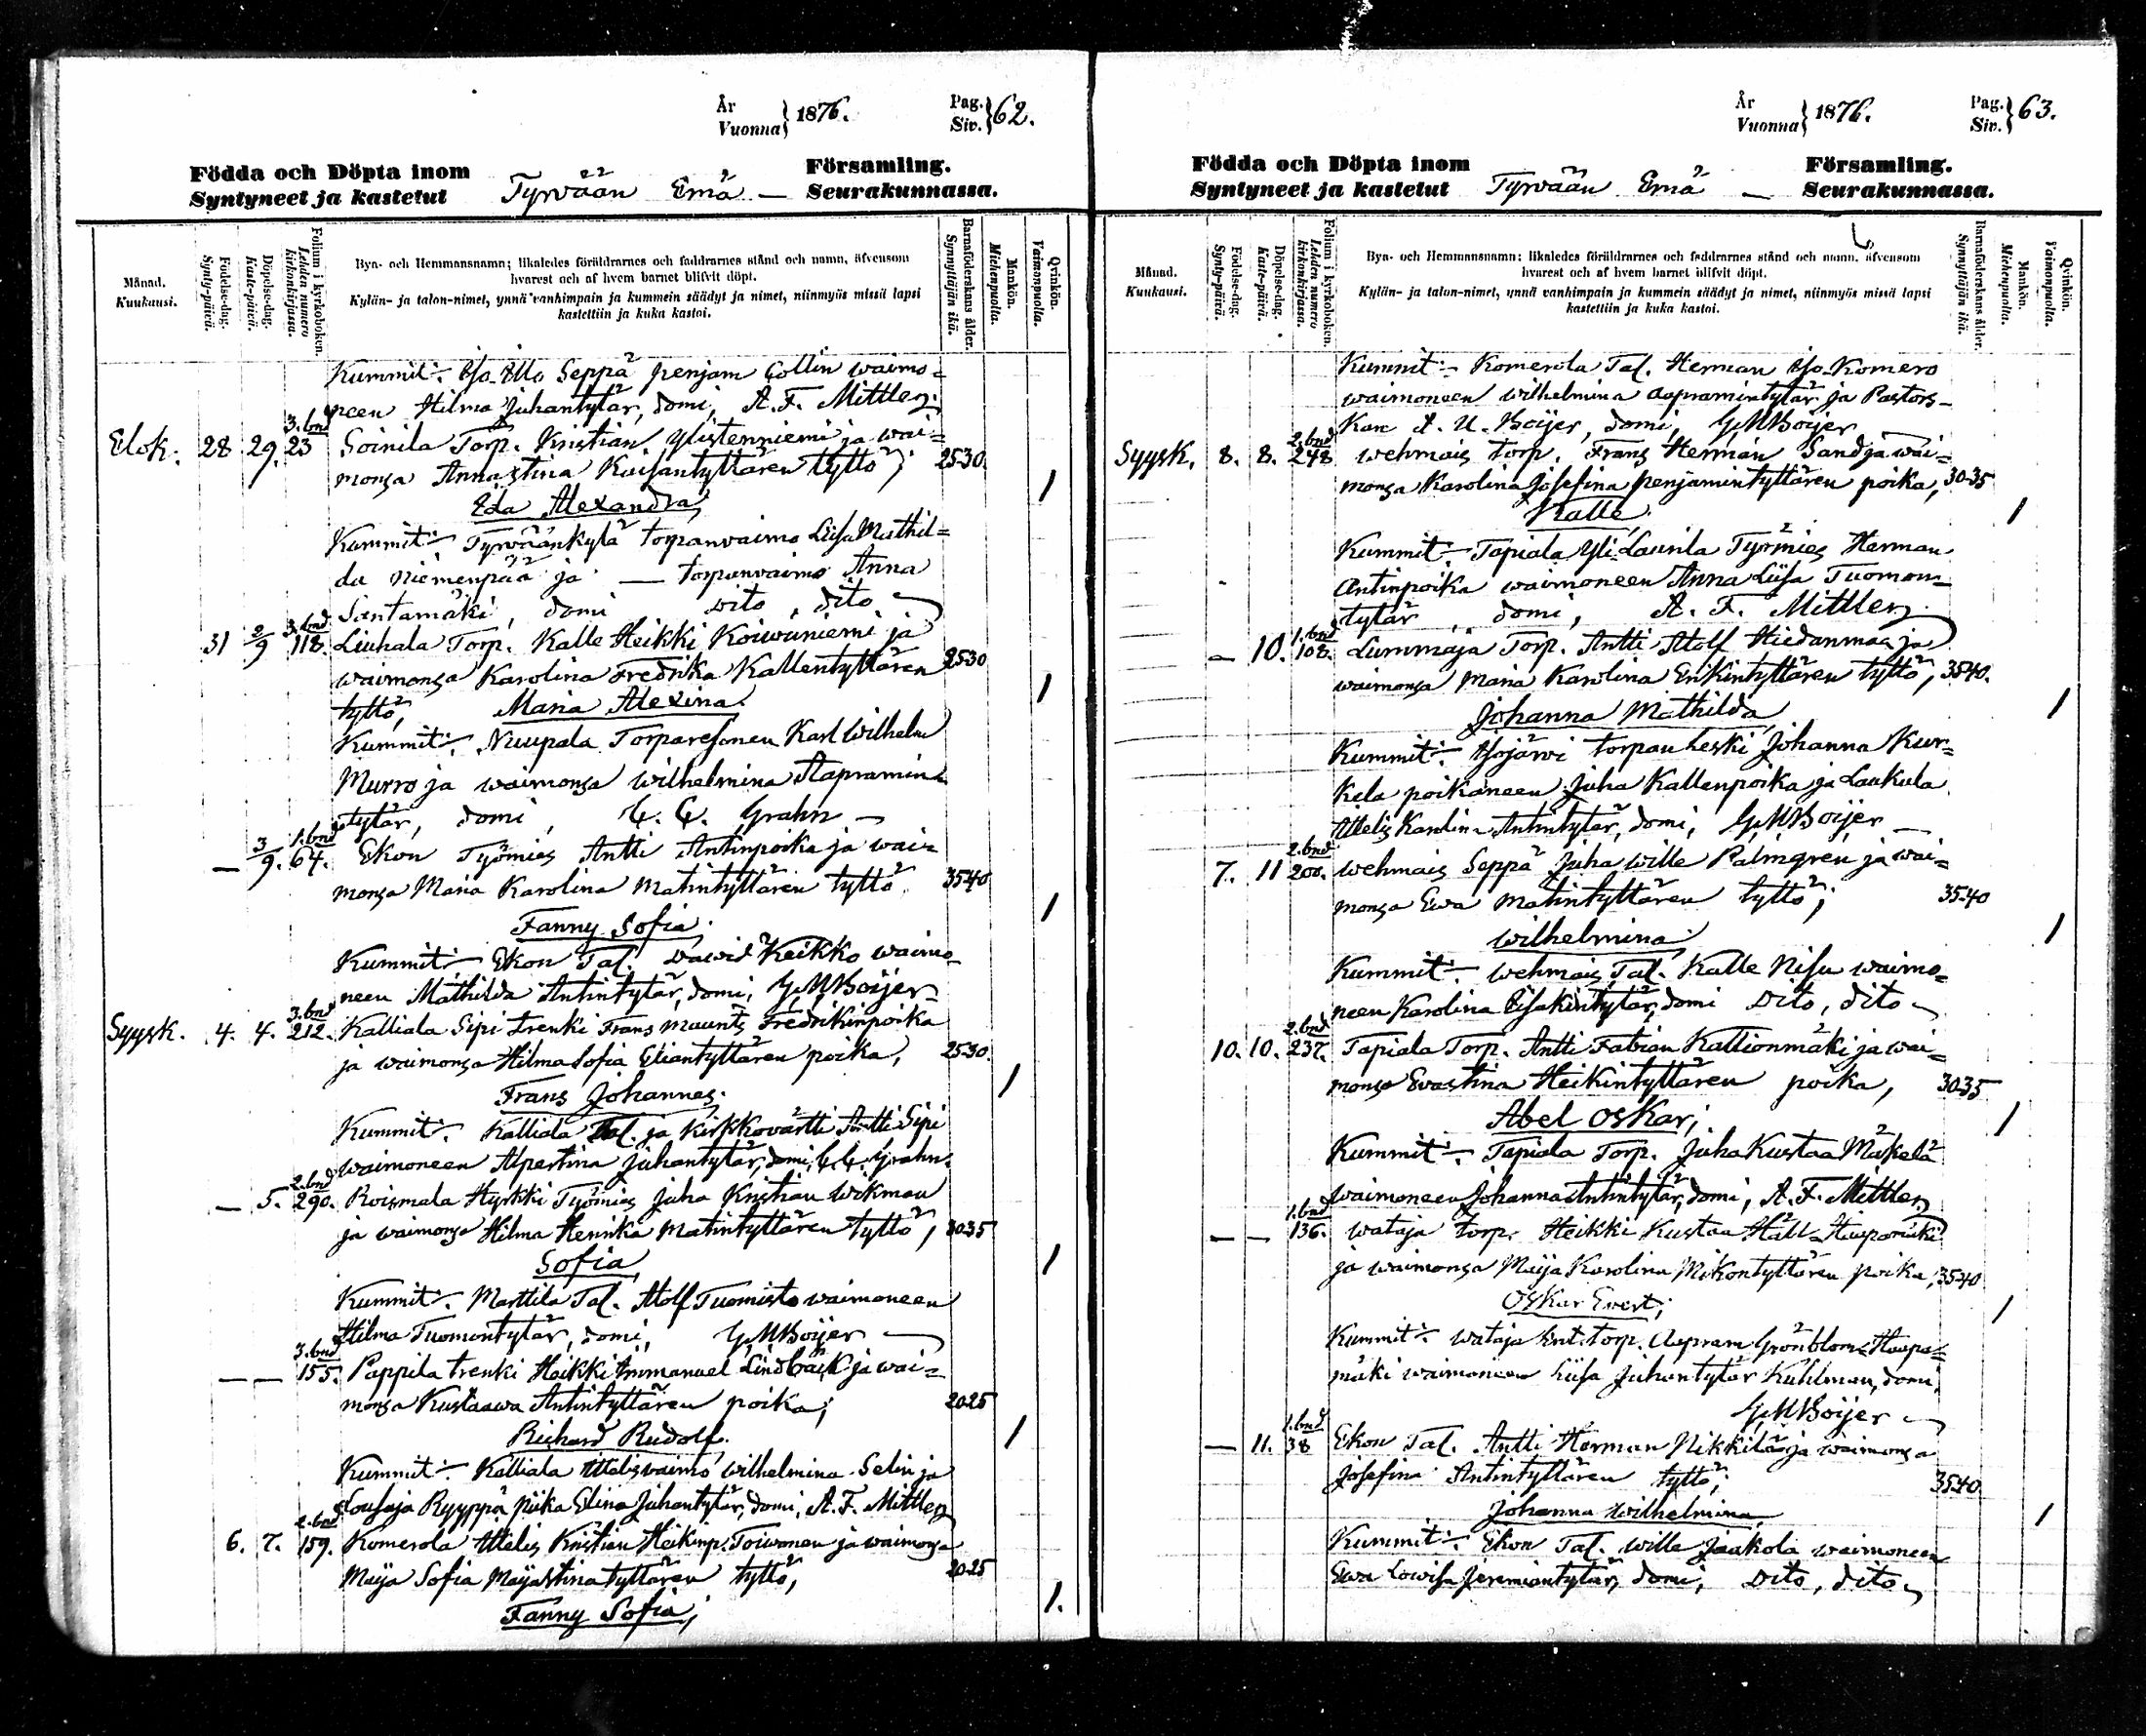 År
Vuonna } 1876.
Pag.
Siv. } 62.
Födda och Döpta inom
Syntyneet ja kastetut
Tyrvään Emä —
Församling.
Seurakunnassa.
Månad.
Kuukausi.
Födelse-dag.
Synty-päivä.
Döpelse-dag.
Kaste-päivä.
Folium i kyrkoboken.
Lehden numero kirkonkirjassa.
Byn- och Hemmansnamn; likaledes föräldrarnes och faddrarnes stånd och namn, äfvensom
hvarest och af hvem barnet blifvit döpt.
Kylän- ja talon-nimet, ynnä vanhimpain ja kummein säädyt ja nimet, niinmyös missä lapsi
kastettiin ja kuka kastoi.
Barnaföderskans ålder.
Synnyttäjän ikä.
Mankön.
Miehenpuolta.
Qvinkön.
Vaimonpuolta.
Kummit:- Iso-Illo Seppä penjam Collin waimo=
neen Hilma Juhantytär, domi, A. F. Mittler,
Elok. 28 29. 3. bnd 23 Soinila Torp. Kristian Ylistenniemi ja wai=
monsa Annastina Kaisantyttären tyttö; 25-30. 1
Eda Alexandra,
Kummit:- Tyrväänkylä torpanvaimo Liisa Mathil=
da Niemenpää ja — torpanvaimo Anna
Santamäki, domi dito, dito
31 2/9 3. bnd 118. Liuhala Torp. Kalle Heikki Koivuniemi ja
waimonsa Karolina Fredrika Kallentyttären 25-30 1
tyttö, Maria Alexina.
Kummit:- Nuupala Torparesonen Karl Wilhelm
Murro ja waimonsa Wilhelmina Aapramin-
tytär, domi, C. C. Grahn —
— 3/9. 1. bnd 64. Ekon Työmies Antti Antinpoika ja wai=
monsa Maria Karolina Matintyttären tyttö 35-40 1
Fanny Sofia.
Kummit:- Ekon Tal. Dawid Keikko waimo-
neen Mathilda Antintytär, domi, G. M Boijer
Syysk. 4. 4. 3. bnd 212. Kalliala Sipi trenki Frans Maunts Fredrikinpoika
ja waimonsa Hilma Sofia Eliantyttären poika, 25-30. 1
Frans Johannes.
Kummit:- Kalliala Tal. ja kirkkovärtti Antti Sipi
waimoneen Alpertina Juhantytär, domi, C. C. Grahn.
— 5. 2. bnd 290. Roismala Hyrkki Työmies Juha Kristian Wikman
ja waimonsa Hilma Henrika Matintyttären tyttö, 30-35 1
Sofia,
Kummit:- Marttila Tal. Atolf Tuomisto waimoneen
Hilma Tuomontytär, domi, G. M Boijer —
— — 3. bnd 155. Pappila trenki Heikki Immanuel Lindbäck ja wai=
monsa Kustaawa Antintyttären poika; 20-25 1
Richard Rudolf.
Kummit:- Kalliala Itselisvaimo Wilhelmina Selin ja
Ryyppä piika Elina Juhantytär, domi, A. F. Mittler,
6. 7. 2. bnd 159. Komerola Itselis Kristian Heikinp. Toiwonen ja waimonsa
Maija Sofia Maijastinatyttären tyttö, 20-25 1.
Fanny Sofia;
År
Vuonna } 1876.
Pag.
Siv. } 63.
Födda och Döpta inom
Syntyneet ja kastetut
Tyrvään Emä —
Församling.
Seurakunnassa.
Månad.
Kuukausi.
Födelse-dag.
Synty-päivä.
Döpelse-dag.
Kaste-päivä.
Folium i kyrkoboken.
Lehden numero kirkonkirjassa.
Byn- och Hemmansnamn; likaledes föräldrarnes och faddrarnes stånd och namn, äfvensom
hvarest och af hvem barnet blifvit döpt.
Kylän- ja talon-nimet, ynnä vanhimpain ja kummein säädyt ja nimet, niinmyös missä lapsi
kastettiin ja kuka kastoi.
Barnaföderskans ålder.
Synnyttäjän ikä.
Mankön.
Miehenpuolta.
Qvinkön.
Vaimonpuolta.
Kummit:- Komerola Tal. Herman Iso-Komero
waimoneen Wilhelmina Aapramintytär ja Pastors-
A. U. Boijer, domi, G M Boijer
Syysk. 8. 8. 2. bnd 248 Wehmais torp. Frans Herman Sand ja wai=
monsa Karolina Josefina Penjamintyttären poika, 30-35 1
Kalle,
Kummit:- Tapiala Yli-Laurila Työmies Herman
Antinpoika waimoneen Anna Liisa Tuomon-
tytär, domi, A. F. Mittler,
— 10. 1. bnd 108. Lummaja Torp. Antti Atolf Hiedanmaa ja
waimonsa Maria Karolina Erkintyttären tyttö, 35-40. 1
Johanna Mathilda,
Kummit:- Isojärwi torpan leski Johanna Kur=
kela poikaneen Juha Kallenpoika ja Laukula
Itselis Karolina Antintytär, domi, G M Boijer
7. 11 2. bnd 200. Wehmais Seppä Juha Wille Palmgren ja wai=
monsa Ewa Matintyttären tyttö; 35-40 1
Wilhelmina.
Kummit:- Wehmais Tal. Kalle Nisu waimo-
neen Karolina Eisakintytär, domi Dito, dito
10. 10. 2. bnd 237. Tapiala Torp. Antti Fabian Kallionmäki ja wai=
monsa Evastina Heikintyttären poika, 30-35 1
Abel Oskar;
Kummit:- Tapiala Torp. Juha Kustaa Mäkelä
waimoneen Johanna Antintytär, domi, A. F. Mittler,
— — 1. bnd 136. Wataja torp. Heikki Kustaa Häll-Haapamäki
ja waimonsa Maija Karolina Mikontyttären poika, 35-40 1
Oskar Evert;
Kummit:- Wataja torp. Aapram Grönblom-Haapa=
mäki waimoneen Liisa Juhantytär Kuhlman, domi,
G M Boijer
— 11. 1. bnd 38 Ekon Tal. Antti Herman Nikkilä ja waimonsa
Josefina Antintyttären tyttö; 35-40 1
Johanna Wilhelmina,
Kummit:- Ekon Tal. Wille Jaakola waimoneen
Ewa Lowisa Jeremiantytär, domi, Dito, dito